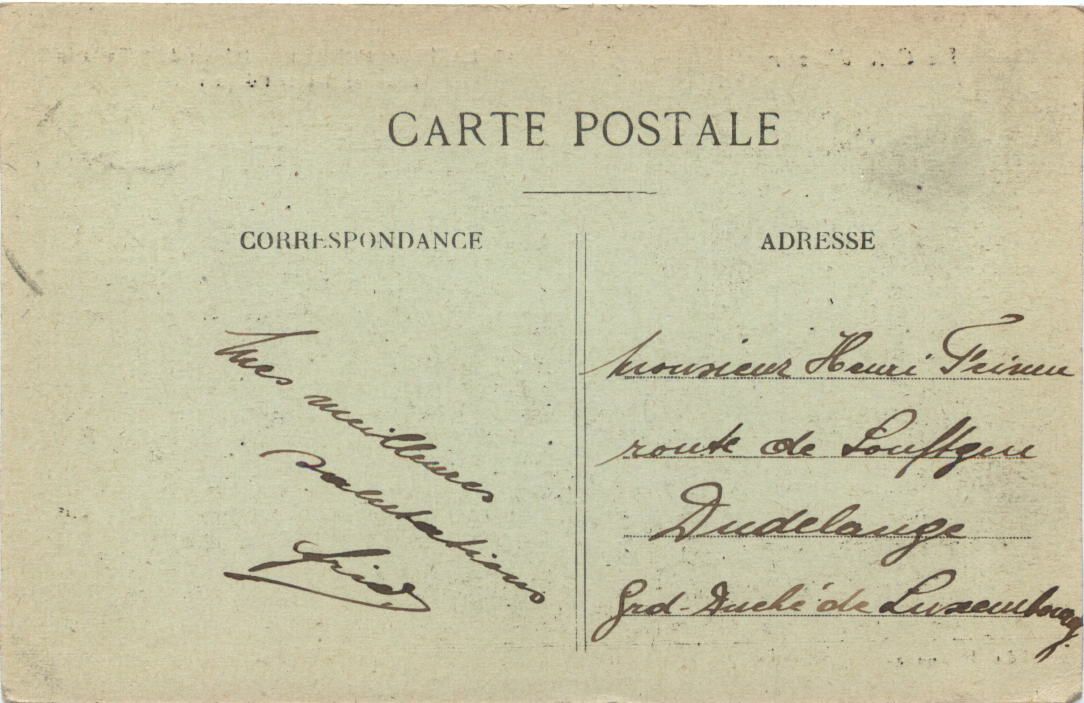 CARTE POSTALE
CORRESPONDANCE
Mes meilleures
salutations
ADRESSE
Monsieur Henri
route de
Dudelange
Grd-Duché de Luxembourg.